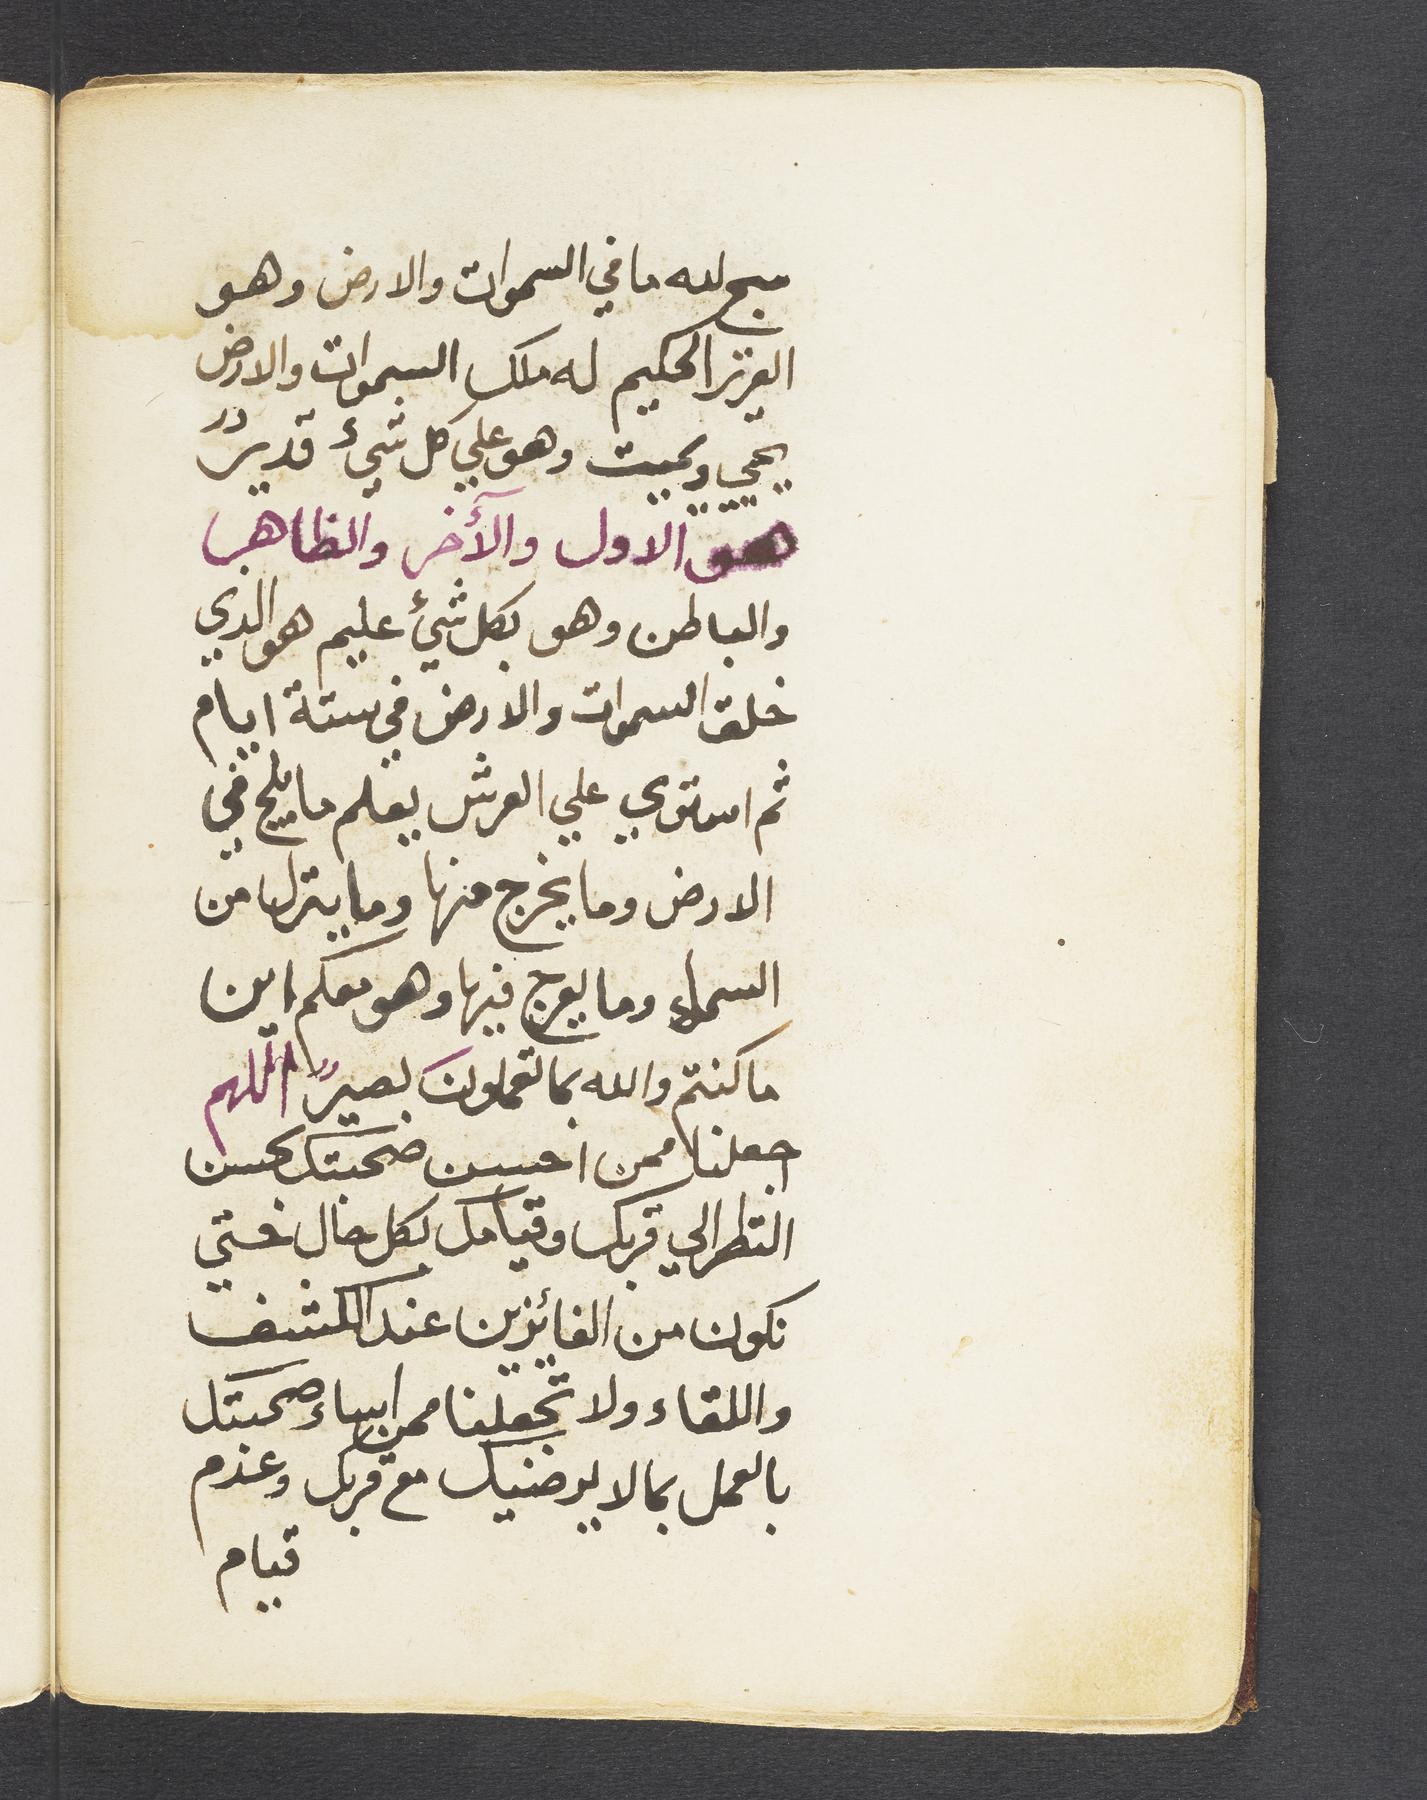 سبح لله ما في السموات والارض وهو
العزيز الحكيم له ملك السموات والارض
يحيي ويميت وهو علي كل شيء قديرٌ
هو الاول والآخر والظاهر
والباطن وهو بكل شيء عليم هو الذي
خلق السموات والارض في ستة ايام
ثم استوي علي العرش يعلم ما يلج في
الارض وما يخرج منها وما ينزل من
السماء وما يعرج فيها وهو معكم اين
ما كنتم والله بما تعملون بصيرٌ اللهم
اجعلنا ممن احسن صحبتك بحسن
النظر الي قربك وقيامك بكل حال حتي
نكون من الفائزين عند الكشف
واللقاء ولا تجعلنا ممن اساء صحبتك
بالعمل بما لا يرضيك مع قربك وعدم
قيام